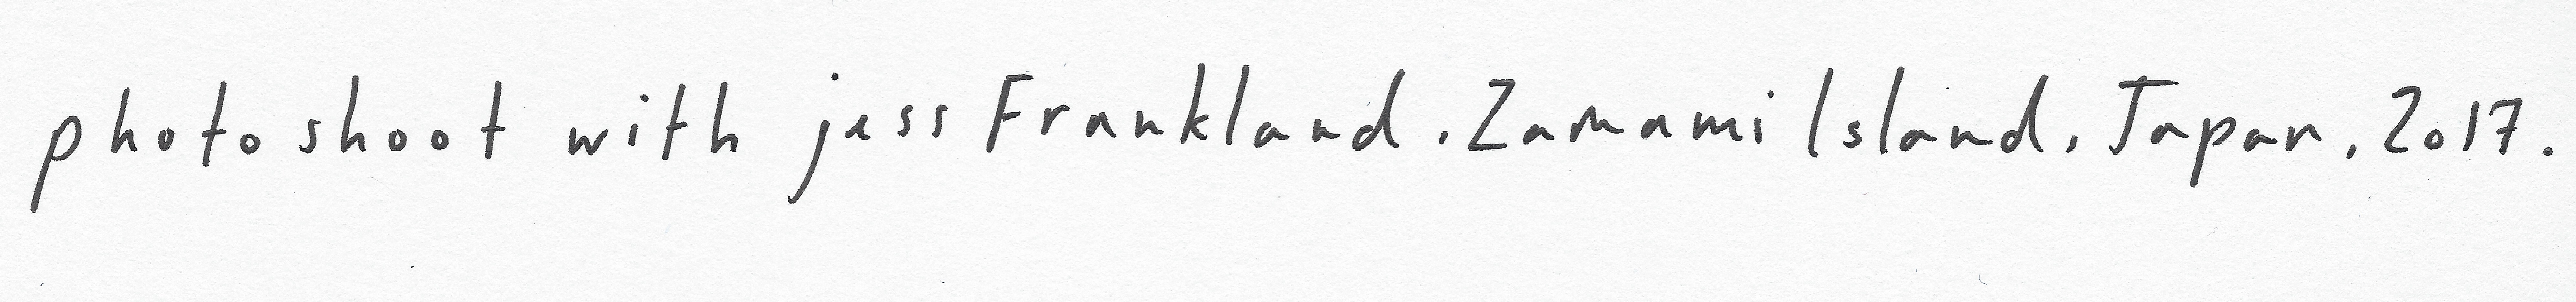 photo shoot with jess Frankland. Zamami Island, Japan, 2017.